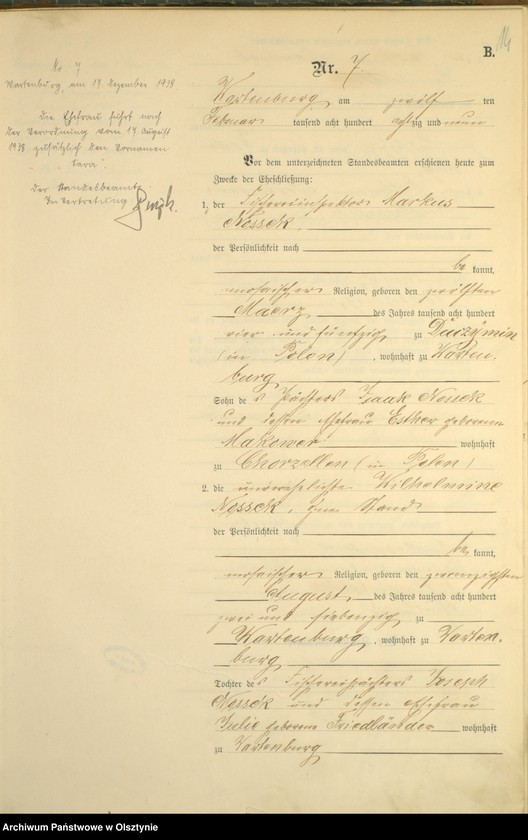 14
B.
Nr. 7
Nr 7
Wartenburg, am 19 Dezember 1938
Die Ehefrau führt nach
der Verordnung vom 17 August
1938 zusätzlich den Vornamen
"Sara".
Der Standesbeamte
In Vertretung
Wartenburg am zwölf ten
Februar tausend acht hundert achtzig und neun
Vor dem unterzeichneten Standesbeamten erschienen heute zum
Zwecke der Eheschließung:
1. der Fischereiinspektor Markus
Nosseck
der Persönlichkeit nach
be kannt,
mosaischer Religion, geboren den zwölften
Maerz des Jahres tausend acht hundert
vier und fünfzig zu
(in Polen), wohnhaft zu Warten,
burg
Sohn des Pächters Isaak Nosseck
und dessen Ehefrau Esther geborenen
Makower wohnhaft
zu Chorzellen (in Polen)
2. die unverehelichte Wilhelmine
Nosseck, ohne Stand
der Persönlichkeit nach
be kannt,
mosaischer Religion, geboren den zwanzigsten
August des Jahres tausend acht hundert
zwei und siebenzig zu
Wartenburg, wohnhaft zu Warten,
burg
Tochter des Fischereipächters Joseph
Nosseck und dessen Ehefrau
Julie geborene Friedländer wohnhaft
zu Wartenburg
Archiwum Państwowe w Olsztynie